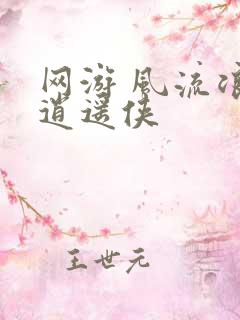 网游风流浪
逍遥侠
王世元